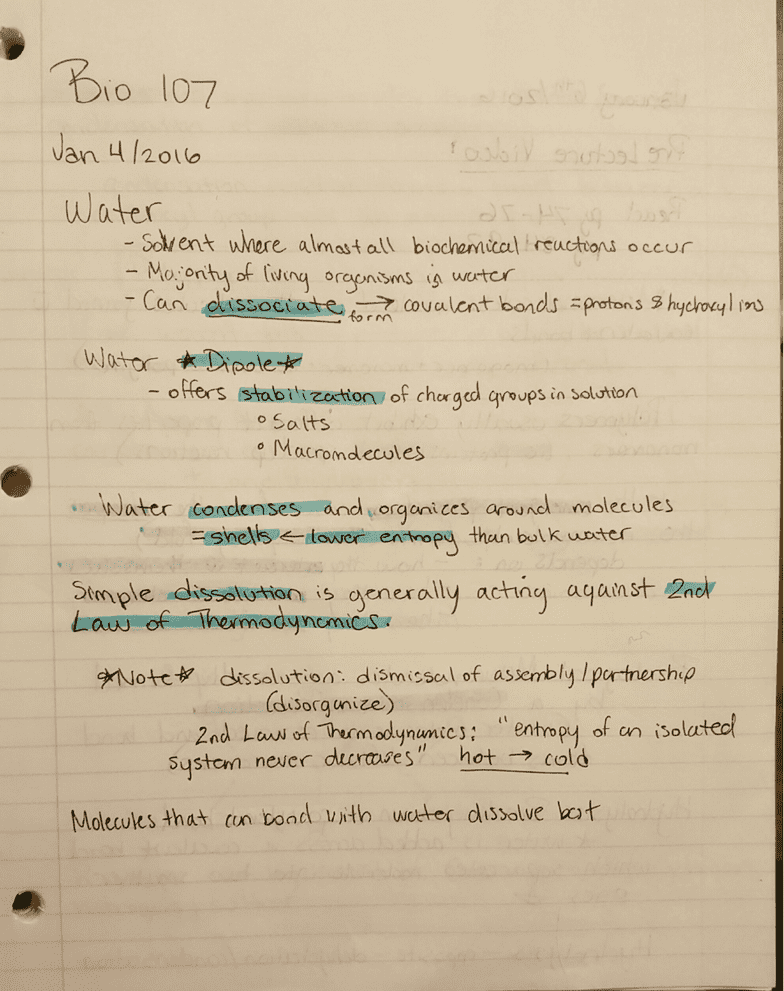 Bio 107
Jan 4/2016
Water
- Solvent where almost all biochemical reactions occur
- Majority of living organisms is water
- Can dissociate → covalent bonds = protons & hydroxyl ions
form
Water ★ Dipole ★
- offers stabilization of charged groups in solution
° Salts
° Macromolecules
Water condenses and organices around molecules
= shells ← lower entropy than bulk water
Simple dissolution is generally acting against 2nd
Law of Thermodynamics.
★Note★ dissolution: dismissal of assembly/partnership
(disorganize)
2nd Law of Thermodynamics: "entropy of an isolated
system never decreases" hot → cold
Molecules that can bond with water dissolve best